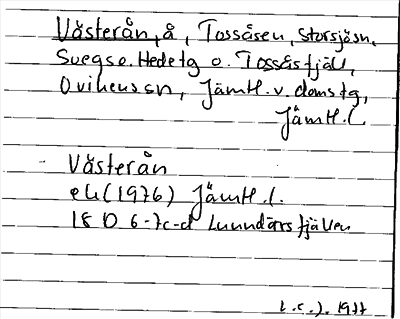 Västerån, å, Tossåsen, Storsjösn,
Svegs o. Hedetg o. Tossåsfjäll,
Ovikens sn, Jämtl. v. domstg,
Jämtl. l.
Västerån
ek (1976) Jämtl. l.
18 D 6-7c-d Lunndörrsfjällen
1977